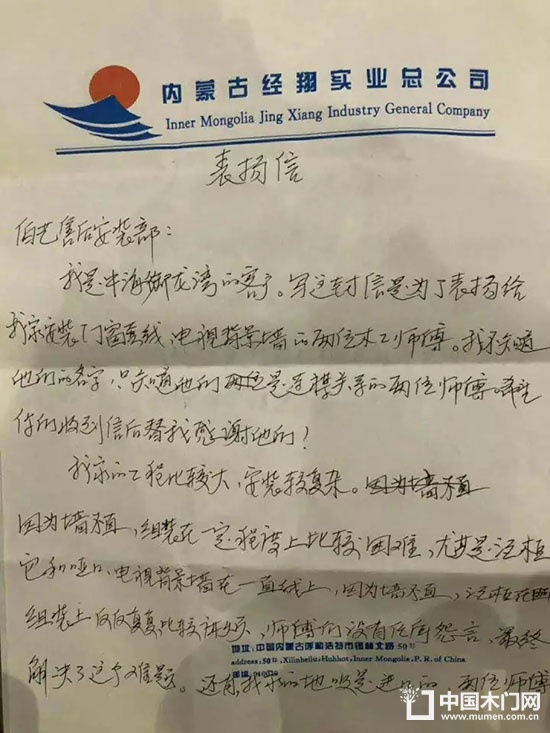 内蒙古经翔实业总公司
Inner Mongolia Jing Xiang Industry General Company
表扬信
伯艺售后安装部：
我是中海御龙湾的客户。写这封信是为了表扬给
我家安装门窗套线、电视背景墙的两位木工师傅。我不知道
他们的名字，只知道他们两位是连襟关系的两位师傅。希望
你们收到信后替我感谢他们！
我家的工程比较大，安装较复杂。因为墙不直
因为墙不直，组装在一定程度上比较困难，尤其是酒柜
它和哑口、电视背景墙在一直线上，因为墙不直，酒柜在
组装上反反复复比较，师傅们没有任何怨言，最终
地址：中国内蒙古呼和浩特市锡林北路50
address:50 Xilinbeilu·Huhhot,Inner Mongolia,P.R.of China
邮编：
解决了这个难题。还有我家的地板是进口的，两位师傅
中国木门网
www.mumen.com.cn